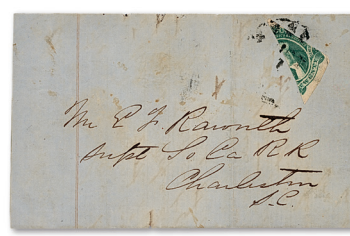 Mr E F Raworth
Supt So Ca R R
Charleston
S.C.